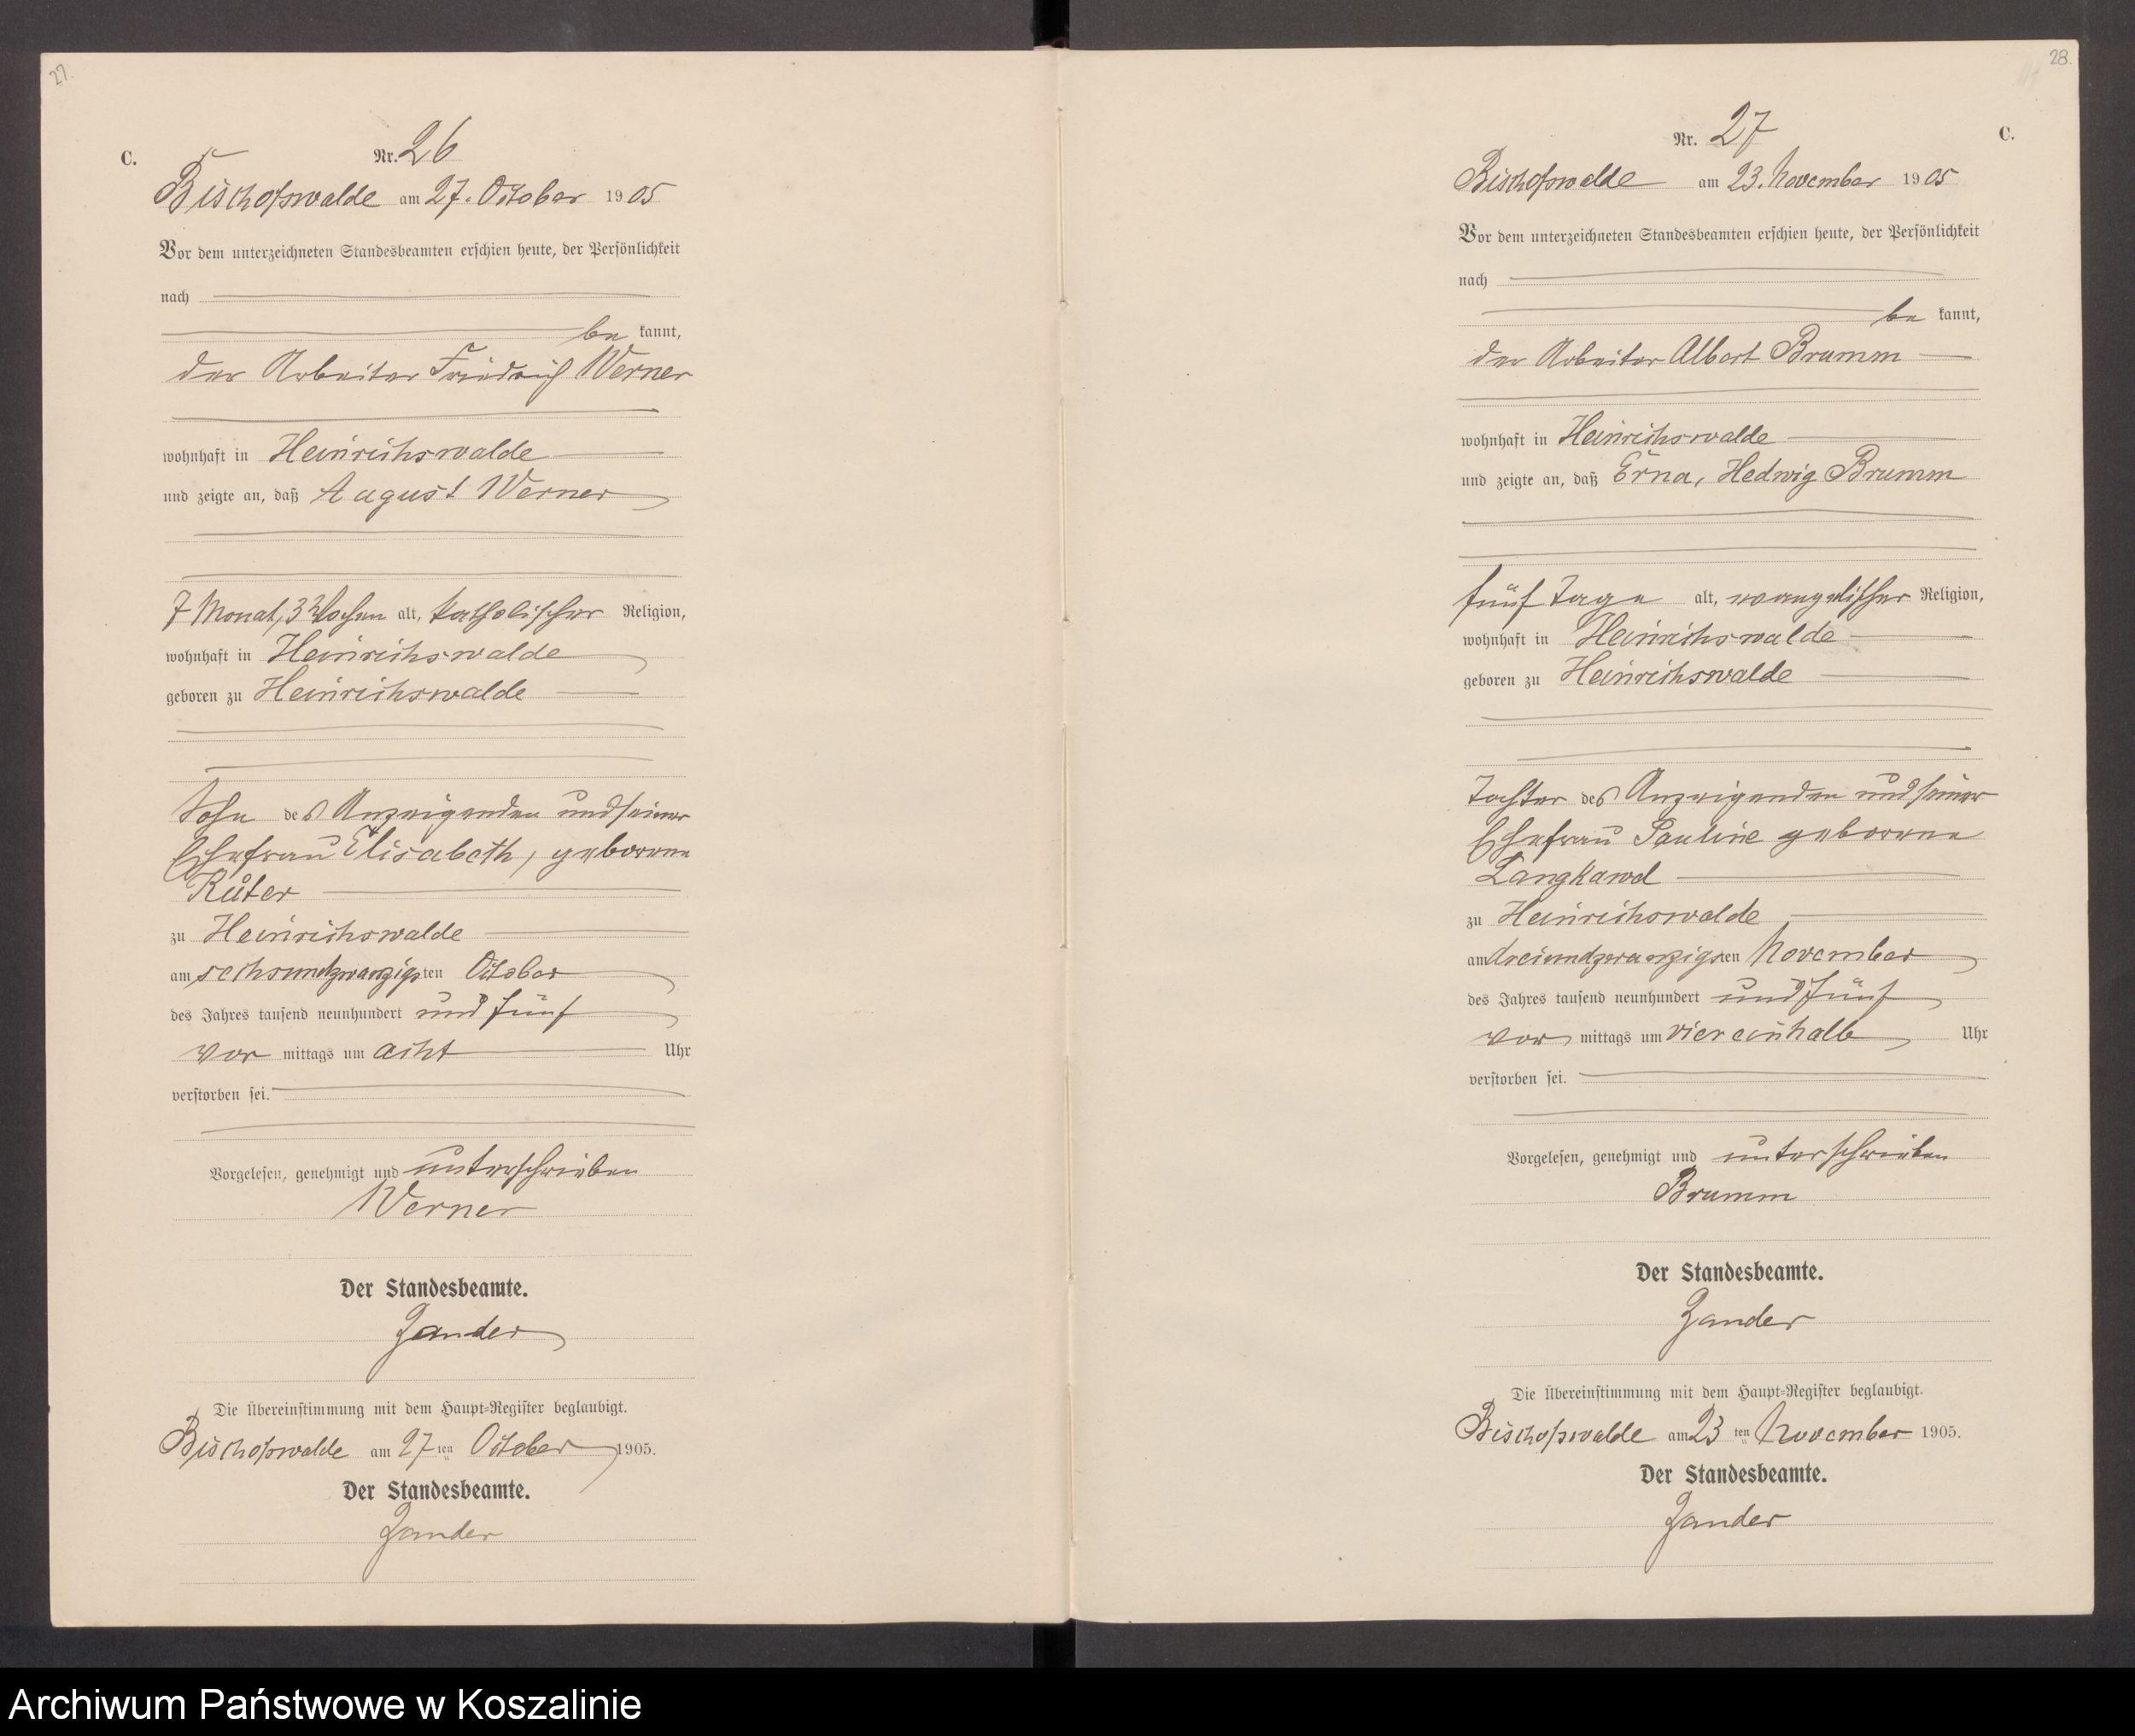 27.
C.
Nr. 26
Bischofswalde am 27. October 1905
Vor dem unterzeichneten Standesbeamten erschien heute, der Persönlichkeit
nach
be kannt,
der Arbeiter Friedrich Werner
wohnhaft in Heinrichswalde
und zeigte an, daß August Werner
7 Monat, 3 Wochen alt, katholischer Religion,
wohnhaft in Heinrichswalde
geboren zu Heinrichswalde
Sohn des Anzeigenden und seiner
Ehefrau Elisabeth, geborene
Rüter
zu Heinrichswalde
am sechsundzwanzigsten October
des Jahres tausend neunhundert und fünf
vor mittags um acht Uhr
verstorben sei.
Vorgelesen, genehmigt und unterschrieben
Werner
Der Standesbeamte.
Zander
Die Übereinstimmung mit dem Haupt-Register beglaubigt.
Bischofswalde am 27ten October 1905.
Der Standesbeamte.
Zander
28.
C.
Nr. 27
Bischofswalde am 23. November 1905
Vor dem unterzeichneten Standesbeamten erschien heute, der Persönlichkeit
nach
be kannt,
der Arbeiter Albert Brumm
wohnhaft in Heinrichswalde
und zeigte an, daß Erna, Hedwig Brumm
fünf Tage alt, evangelischer Religion,
wohnhaft in Heinrichswalde
geboren zu Heinrichswalde
Tochter des Anzeigenden und seiner
Ehefrau Pauline geborene
Langkawel
zu Heinrichswalde
am dreiundzwanzigsten November
des Jahres tausend neunhundert und fünf
vor mittags um viereinhalb Uhr
verstorben sei.
Vorgelesen, genehmigt und unterschrieben
Brumm
Der Standesbeamte.
Zander
Die Übereinstimmung mit dem Haupt-Register beglaubigt.
Bischofswalde am 23ten November 1905.
Der Standesbeamte.
Zander
Archiwum Państwowe w Koszalinie